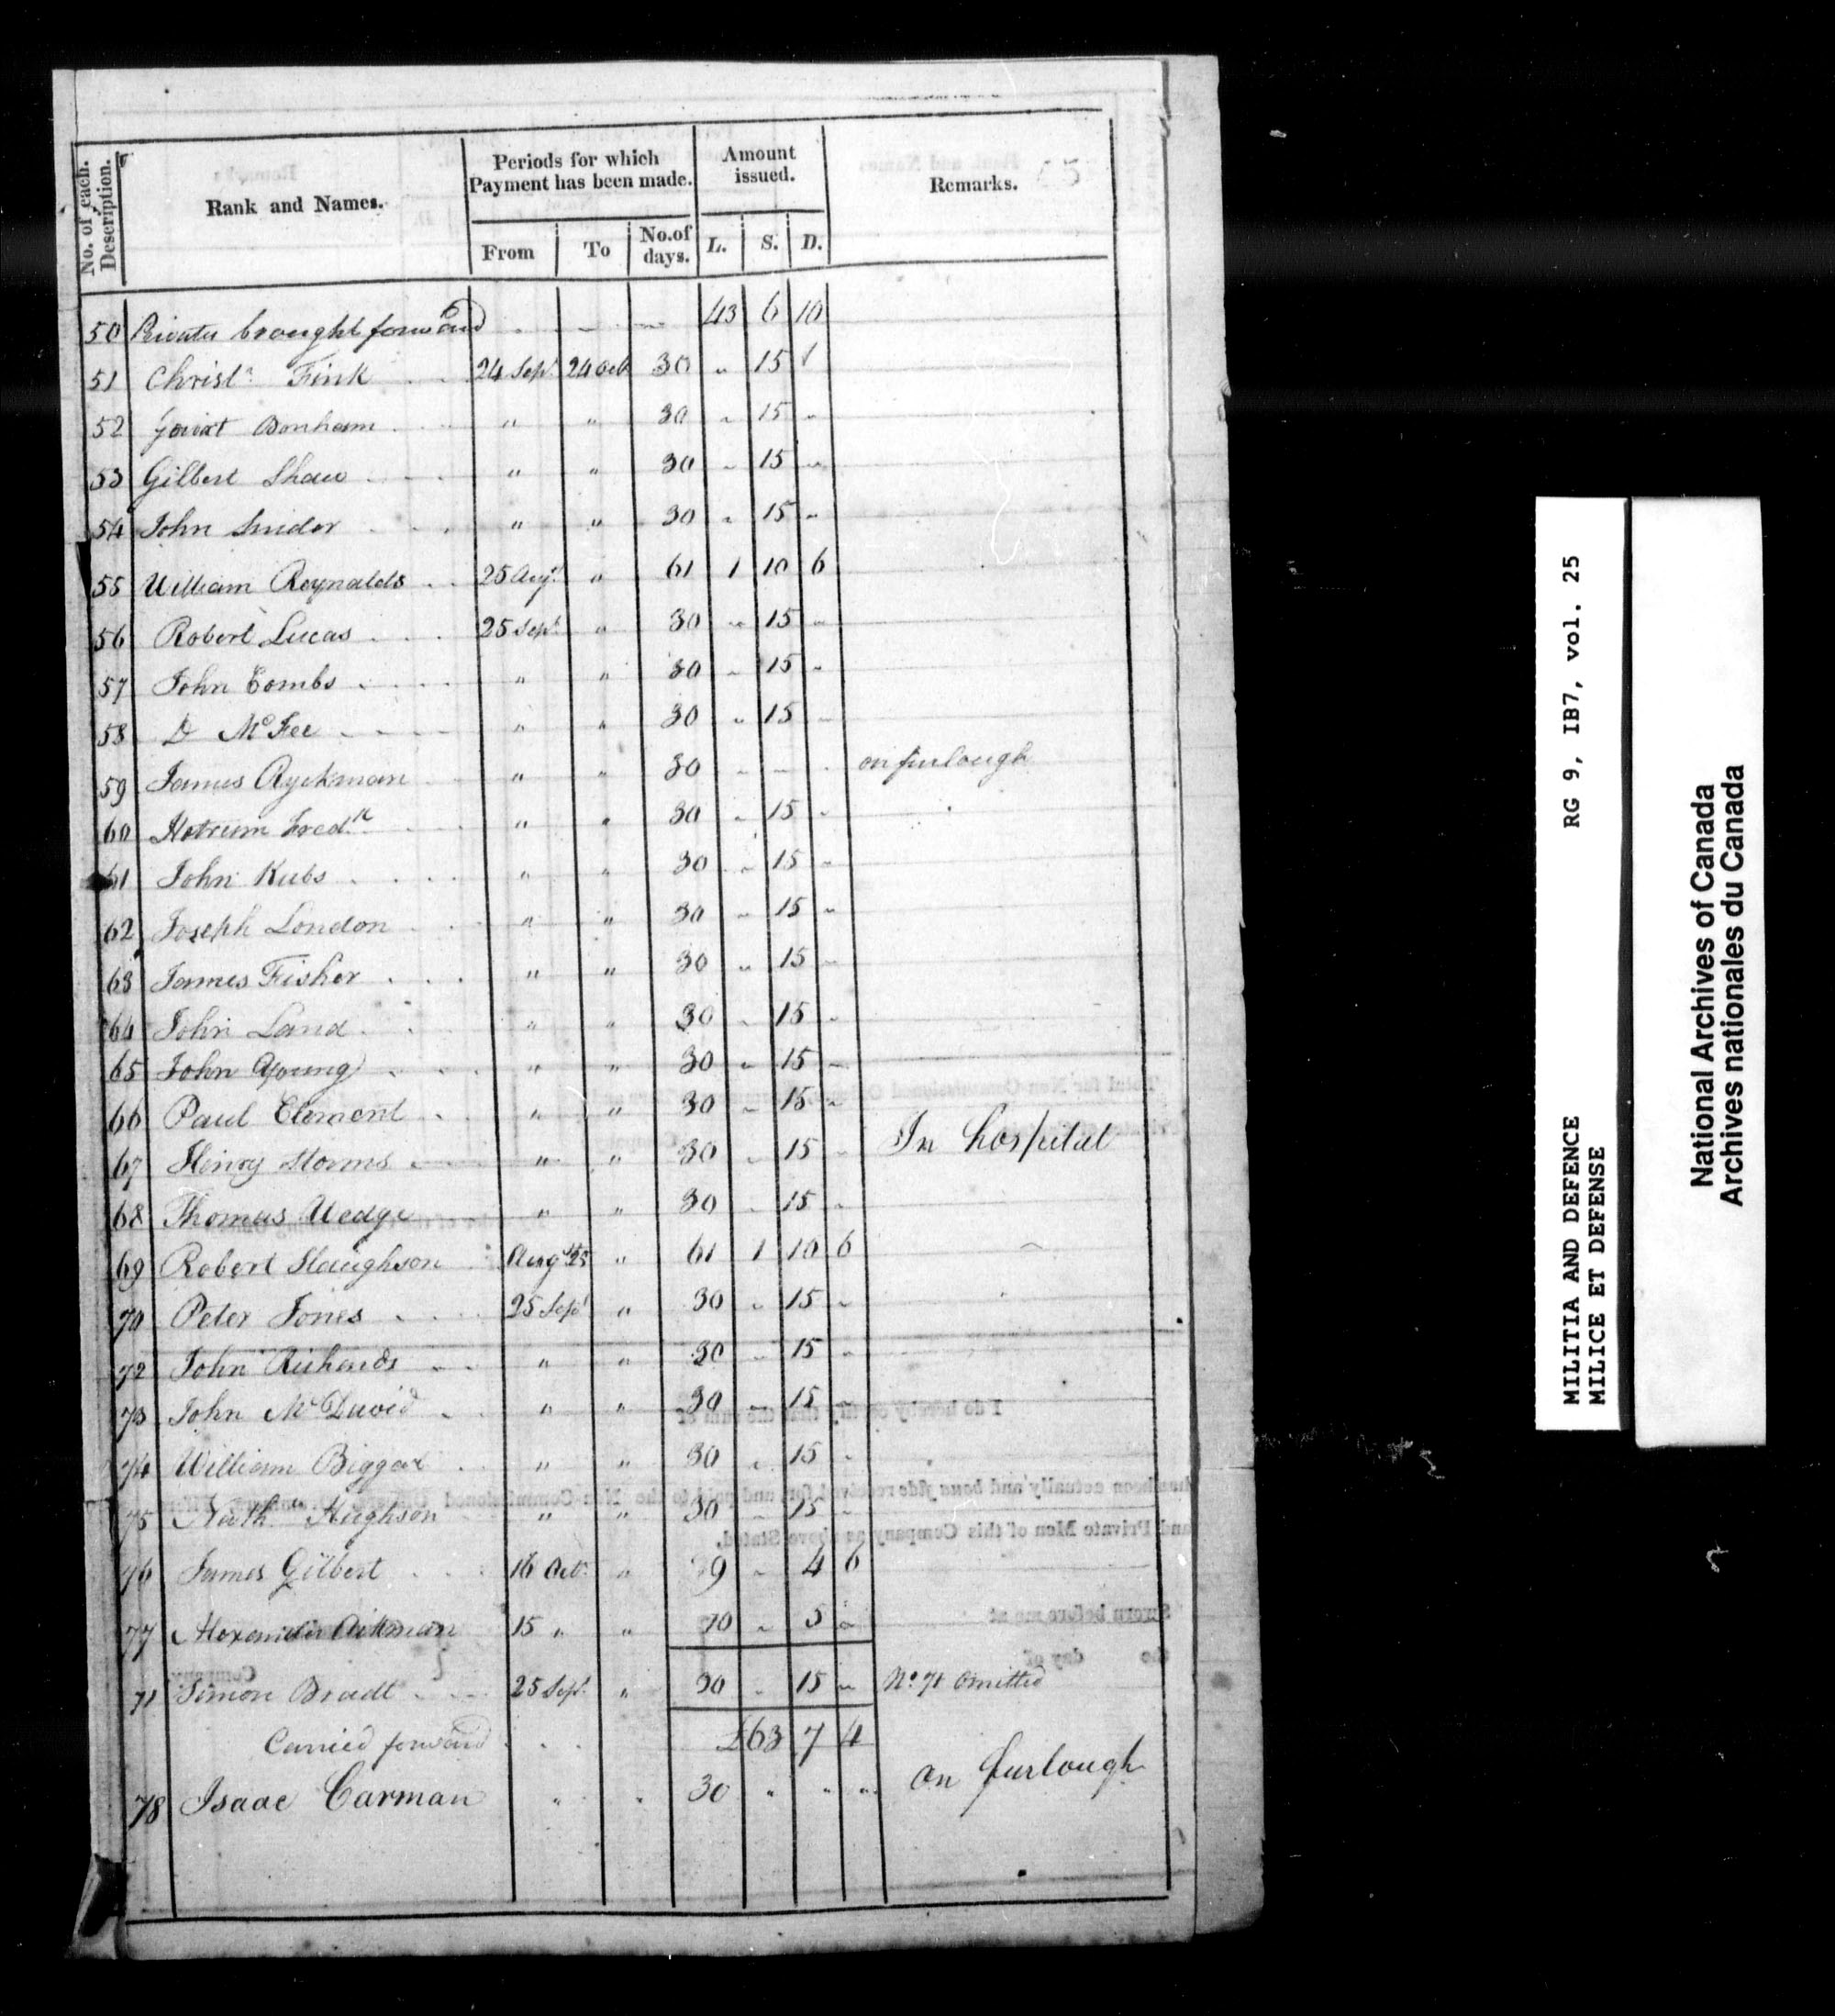 No. of each. Description. Rank and Names. Periods for which Payment has been made. Amount issued. Remarks.
From To No. of days. L. S. D.
50 Privates brought forward 43 6 10
51 Christr Fink 24 Sept 24 Oct 30 " 15
52 Bonham " " 30 " 15 "
53 Gilbert Shaw " " 30 " 15 "
54 John Snider " " 30 " 15 "
55 William Reynalds 25 Augt " 61 1 10 6
56 Robert Lucas 25 Sept " 30 " 15 "
57 John Combs " " 30 " 15 "
58 D McFee " " 30 " 15 "
59 James Ryckman " " 30 " " " on furlough
60 Fredk " " 30 " 15 "
61 John Kubs " " 30 " 15 "
62 Joseph London " " 30 " 15 "
63 James Fisher " " 30 " 15 "
64 John Land " " 30 " 15 "
65 John Young " " 30 " 15 "
66 Paul Clement " " 30 " 15 "
67 Henry Storms " " 30 " 15 " In hospital
68 Thomas Wedge " " 30 " 15 "
69 Robert Haughson Augt 25 " 61 1 10 6
70 Peter Jones 25 Sept " 30 " 15 "
72 John Richards " " 30 " 15 "
73 John McDavid " " 30 " 15 "
74 William Biggar " " 30 " 15 "
75 Nathl Hughson " " 30 " 15 "
76 James Gilbert 16 Octr " 9 " 4 6
77 Alexander Aikman 15 " " 10 " 5 "
71 Simon Bradt 25 Sept " 30 " 15 " No 71 Omitted
Carried forward £63 7 4
78 Isaac Carman " " 30 " " " On furlough
RG 9, IB7, vol. 25
MILITIA AND DEFENCE
MILICE ET DEFENSE
National Archives of Canada
Archives nationales du Canada